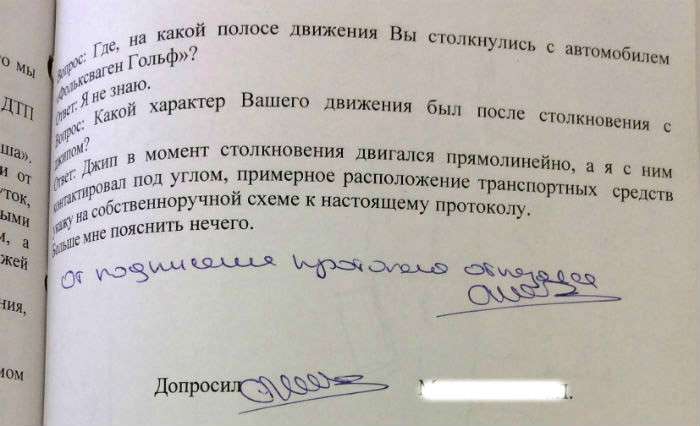 то мы
ДТП
ша».
и от
ток,
ыми
и, а
жей
ния,
мом
Вопрос: Где, на какой полосе движения Вы столкнулись с автомобилем
«Фольксваген Гольф»?
Ответ: Я не знаю.
Вопрос: Какой характер Вашего движения был после столкновения с
джипом?
Ответ: Джип в момент столкновения двигался прямолинейно, а я с ним
контактировал под углом, примерное расположение транспортных средств
укажу на собственноручной схеме к настоящему протоколу.
Больше мне пояснить нечего.
От подписания протокола отказался
Допросил М